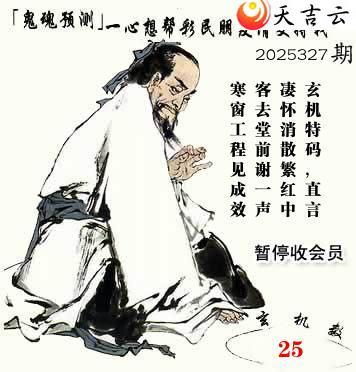 天吉云
「鬼魂预测」一心想帮彩民朋
2025327期
玄机特码，直言
凄怀消散繁红中
客去堂前谢一声
寒窗工程见成效
暂停收会员
玄机数
25